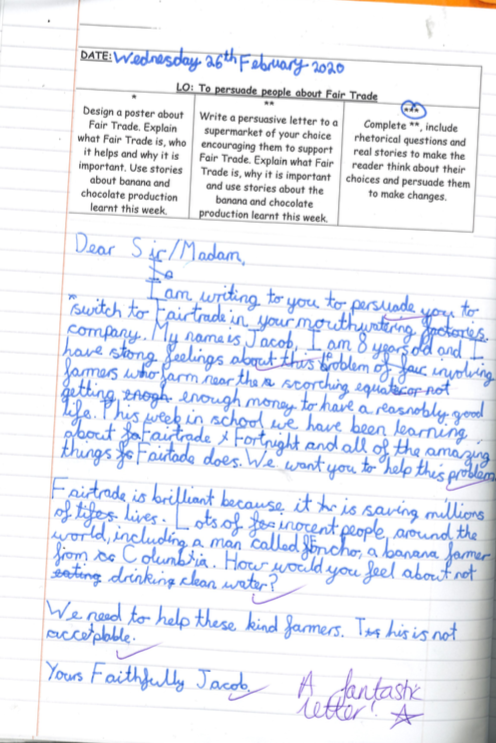 DATE: Wednesday 26th February 2020
LO: To persuade people about Fair Trade
*
Design a poster about
Fair Trade. Explain
what Fair Trade is, who
it helps and why it is
important. Use stories
about banana and
chocolate production
learnt this week.
**
Write a persuasive letter to a
supermarket of your choice
encouraging them to support
Fair Trade. Explain what Fair
Trade is, why it is important
and use stories about the
banana and chocolate
production learnt this week.
***
Complete **, include
rhetorical questions and
real stories to make the
reader think about their
choices and persuade them
to make changes.
Dear Sir/Madam,
I am writing to you to persuade you to
switch to Fairtrade in your mouthwatering factories.
company. My name is Jacob, I am 8 years old and I
have stong feelings about this problem of involving
farmers who farm near the scorching equator not
getting enogh enough money to have a reasnobly good
life. This week in school we have been learning
about Fairtrade Fortnight and all of the amazing
things Fairtade does. We want you to help this problem
Fairtrade is brilliant because it is saving millions
of lifes lives. Lots of inocent people around the
world, including a man called foncho, a banana farmer
from Columbia. How would you feel about not
eating drinking clean water?
We need to help these kind farmers. This is not
acceptable.
Yours Faithfully Jacob
A fantastic
letter!